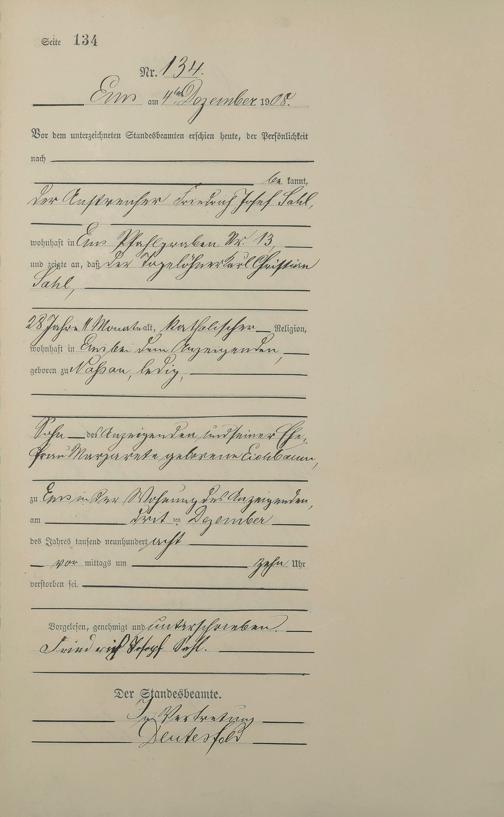 Seite 134
Nr. 134.
Ems am 4ten Dezember 1908.
Vor dem unterzeichneten Standesbeamten erschien heute, der Persönlichkeit
nach
be kannt,
der Anstreicher Friedrich Josef Sahl,
wohnhaft in Ems Pfahlgraben Nr. 13,
und zeigte an, daß der Tagelöhner Karl Christian
Sahl,
28 Jahre 11 Monate alt, katholischer Religion,
wohnhaft in Ems bei dem Anzeigenden,
geboren zu Nassau, ledig,
Sohn des Anzeigenden und seiner Ehe-
frau Margarete geborene Eichbaum,
zu Ems in der Wohnung des Anzeigenden,
am drit en Dezember
des Jahres tausend neunhundert acht
vor mittags um zehn Uhr
verstorben sei.
Vorgelesen, genehmigt und unterschrieben.
Friedrich Josef Sahl.
Der Standesbeamte.
In Vertretung